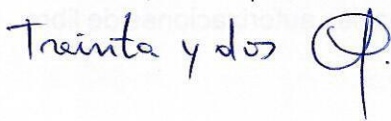 Treinta y dos